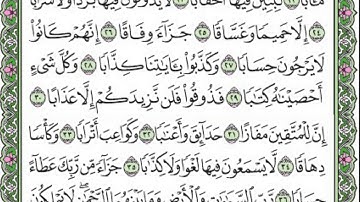 مَـَٔابًا ٢٢ لَّٰبِثِينَ فِيهَآ أَحْقَابًا ٢٣ لَّا يَذُوقُونَ فِيهَا بَرْدًا وَلَا شَرَابًا
٢٤ إِلَّا حَمِيمًا وَغَسَّاقًا ٢٥ جَزَآءً وِفَاقًا ٢٦ إِنَّهُمْ كَانُوا۟
لَا يَرْجُونَ حِسَابًا ٢٧ وَكَذَّبُوا۟ بِـَٔايَٰتِنَا كِذَّابًا ٢٨ وَكُلَّ شَىْءٍ
أَحْصَيْنَٰهُ كِتَٰبًا ٢٩ فَذُوقُوا۟ فَلَن نَّزِيدَكُمْ إِلَّا عَذَابًا ٣٠
إِنَّ لِلْمُتَّقِينَ مَفَازًا ٣١ حَدَآئِقَ وَأَعْنَٰبًا ٣٢ وَكَوَاعِبَ أَتْرَابًا ٣٣ وَكَأْسًا
دِهَاقًا ٣٤ لَّا يَسْمَعُونَ فِيهَا لَغْوًا وَلَا كِذَّٰبًا ٣٥ جَزَآءً مِّن رَّبِّكَ عَطَآءً
حِسَابًا ٣٦ رَّبِّ ٱلسَّمَٰوَٰتِ وَٱلْأَرْضِ وَمَا بَيْنَهُمَا ٱلرَّحْمَٰنِ لَا يَمْلِكُونَ